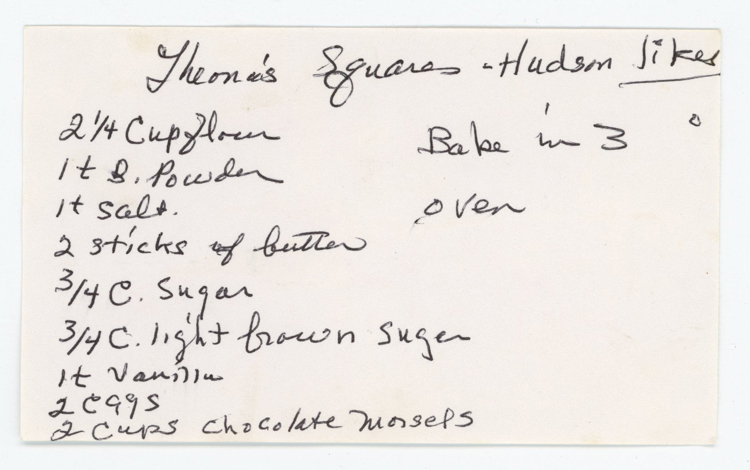 Theona's Squares - Hudson likes
2 1/4 Cup flour
1 t B. Powder
1 t Salt.
2 sticks of butter
3/4 C. Sugar
3/4 C. light brown Sugar
1 t Vanilla
2 eggs
2 Cups chocolate morsels
Bake in 3 °
oven